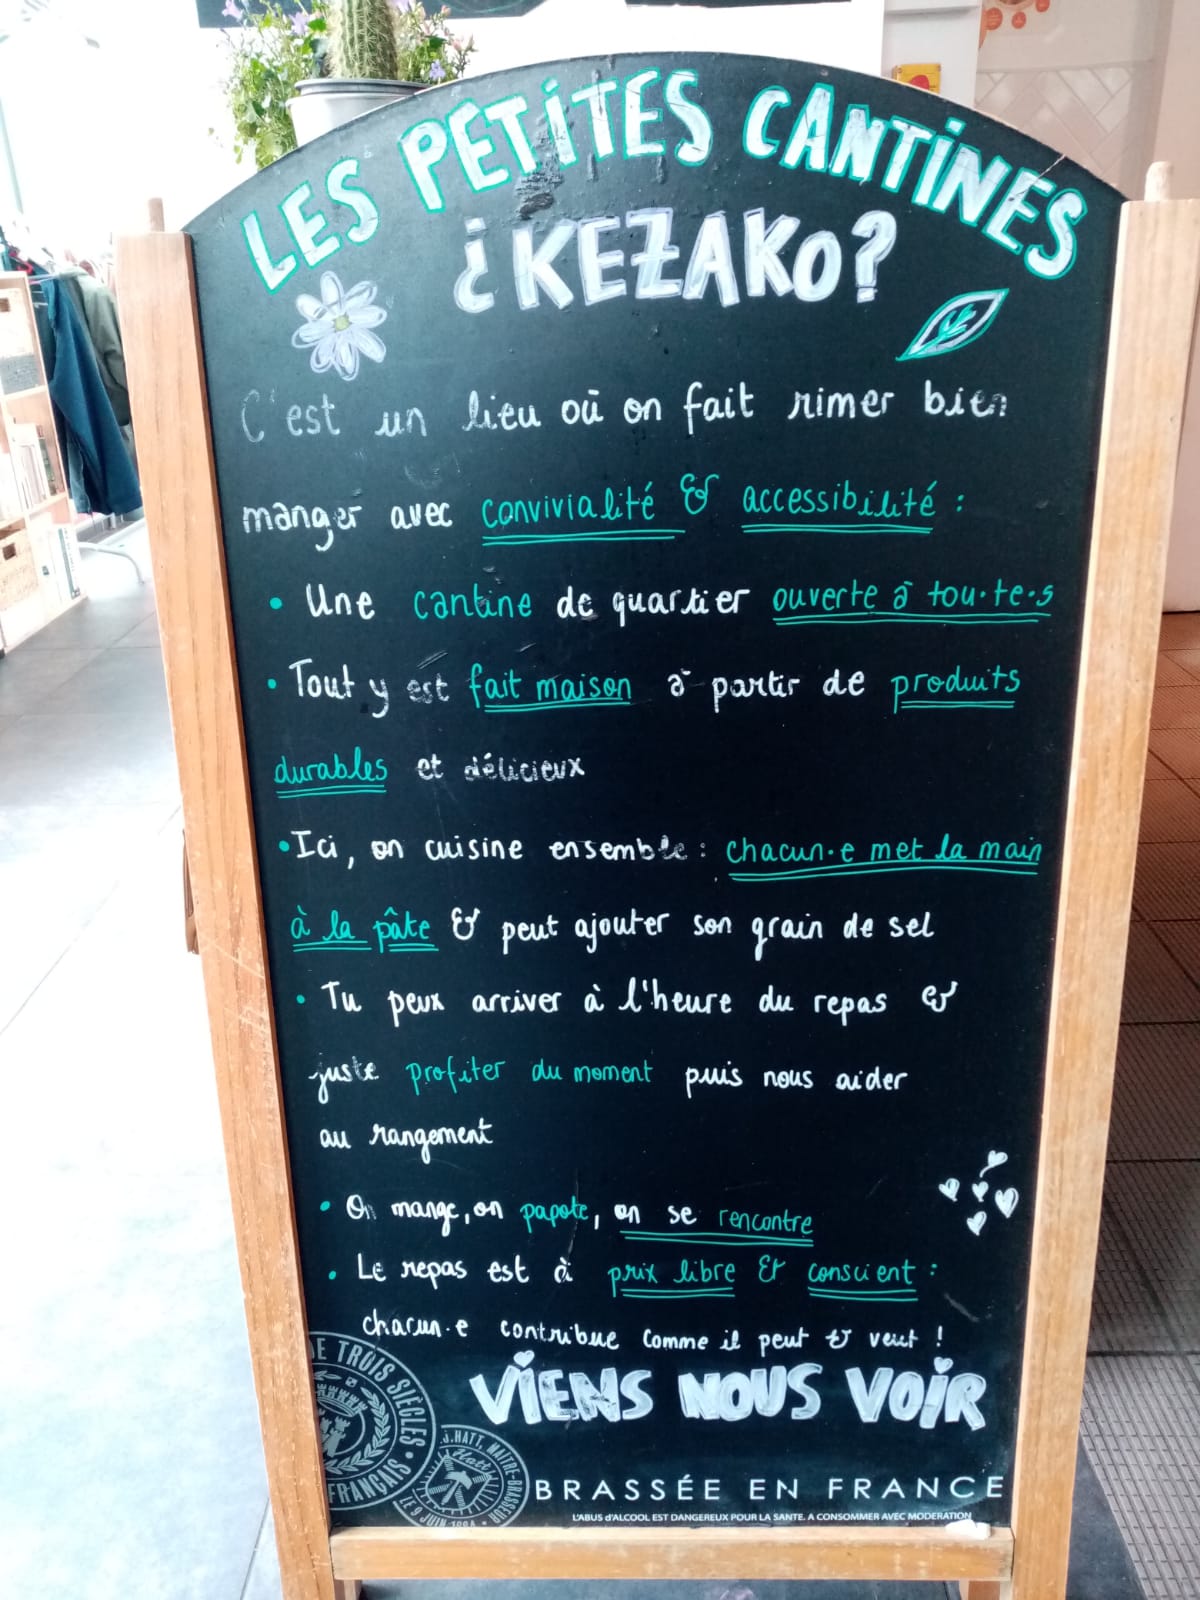 LES PETITES CANTINES
¿KEZAKO?
C'est un lieu où on fait rimer bien
manger avec convivialité & accessibilité :
• Une cantine de quartier ouverte à tou·te·s
• Tout y est fait maison à partir de produits
durables et délicieux
• Ici, on cuisine ensemble : chacun·e met la main
à la pâte & peut ajouter son grain de sel
• Tu peux arriver à l'heure du repas &
juste profiter du moment puis nous aider
au rangement
• On mange, on papote, on se rencontre
• Le repas est à prix libre & conscient :
chacun·e contribue comme il peut & veut !
VIENS NOUS VOIR
DE TROIS SIÈCLES •
FRANÇAIS
J.HATT, MAITRE-BRASSEUR
Hatt
LE 9 JUIN
BRASSÉE EN FRANCE
L'ABUS d'ALCOOL EST DANGEREUX POUR LA SANTE. A CONSOMMER AVEC MODERATION